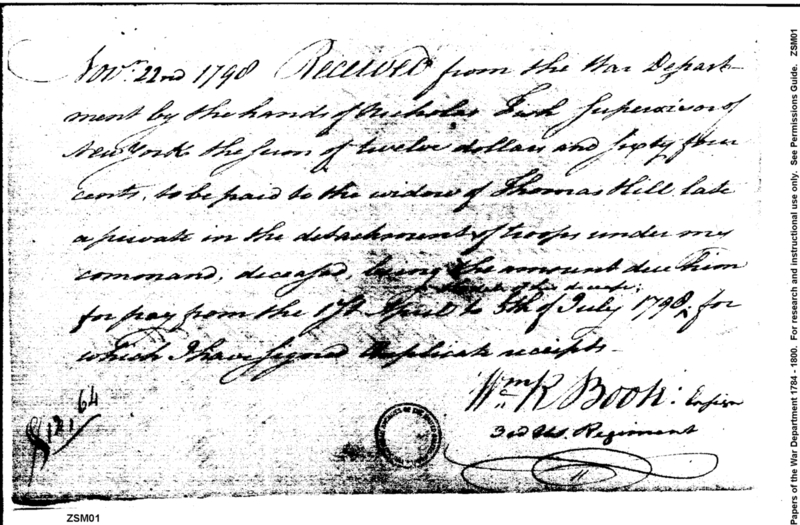 Novr. 22nd 1798 Received from the War Depart-
ment by the hands of Nicholas Fish Supervisor of
New York the sum of twelve dollars and sixty four
cents, to be paid to the widow of Thomas Hill late
a private in the detachment of troops under my
command, deceased, being the amount due him
for pay from the 1st April to 5th of July 1798, for
which I have signed duplicate receipts.
Wm R Booth: Ensign
3rd US. Regiment
$12,64
ZSM01
Papers of the War Department 1784 - 1800. For research and instructional use only. See Permissions Guide. ZSM01